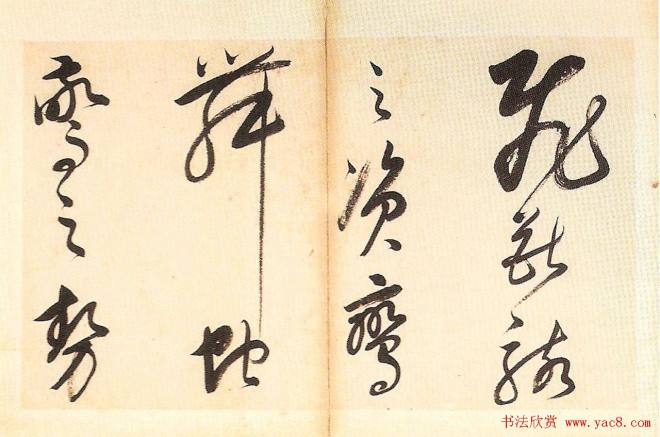 飛獸駭
之資鸞
舞蛇
驚之勢
书法欣赏 www.yac8.com